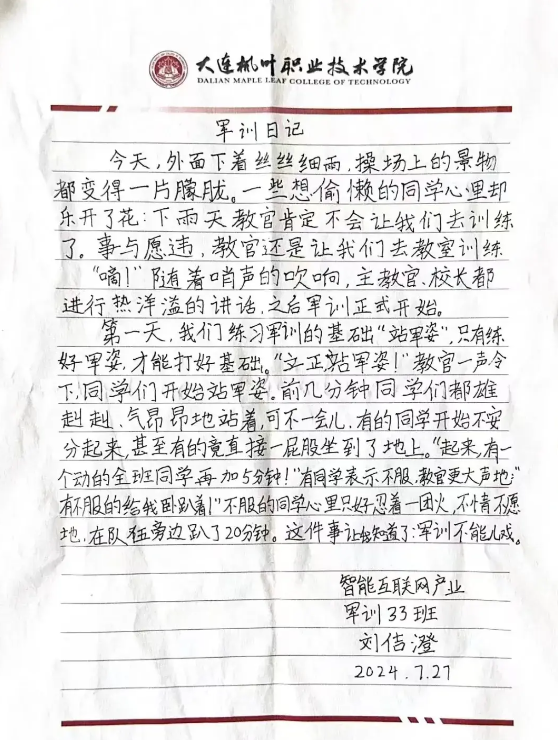 大连枫叶职业技术学院
DALIAN MAPLE LEAF COLLEGE OF TECHNOLOGY
军训日记
今天,外面下着丝丝细雨,操场上的景物
都变得一片朦胧。一些想偷懒的同学心里却
乐开了花:下雨天教官肯定不会让我们去训练
了。事与愿违,教官还是让我们去教室训练
"嘀!"随着哨声的吹响,主教官、校长都
进行热洋溢的讲话,之后军训正式开始。
第一天,我们练习军训的基础"站军姿",只有练
好军姿,才能打好基础。"立正,站军姿!"教官一声令
下,同学们开始站军姿。前几分钟同学们都雄
赳赳、气昂昂地站着,可不一会儿,有的同学开始不安
分起来,甚至有的竟直接一屁股坐到了地上。"起来,有一
个动的全班同学再加5分钟!"有同学表示不服,教官更大声地:"
有不服的给我卧趴着!"不服的同学心里只好忍着一团火,不情不愿
地,在队伍旁边趴了20分钟。这件事让我知道了:军训不能儿戏。
智能互联网产业
军训33班
刘佶澄
2024.7.27